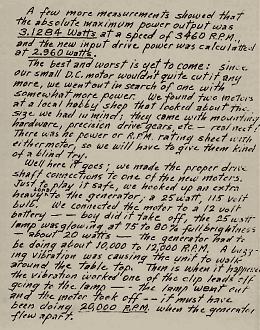 A few more measurements showed that
the absolute maximum power output was
3.1284 Watts at a speed of 3460 R.P.M.
and the new input drive power was calculated
at 2.960 watts.
The best and worst is yet to come: Since
our small D.C. motor wouldn't quite cut it any
more, we went out in search of one with
somewhat more power. We found two meters
at a local hobby shop that looked about the
size we had in mind; they came with mounting
hardware, precision drive gears, etc — real neet!
There was no power or R.P.M. rating sheet with
either motor, so we will have to give them kind
of a blind try.
Well here it goes; we made the proper drive
shaft connections to one of the new meters.
Just to play it safe, we hooked up an extra
heavy load to the generator, a 25 watt, 115 volt
bulb. We connected the motor to a 12 volt
battery — — boy did it take off, the 25 watt
lamp was glowing at 75 to 80% full brightness
— about 20 watts — the generator had to
be doing about 10,000 to 12,000 R.P.M. A buzz-
ing vibration was causing the unit to walk
around the table top. Then is when it happened
the vibration worked one of the clip leads off
going to the lamp — the lamp went out
and the motor took off — it must have
been doing 20,000 R.P.M. when the generator
flew apart.